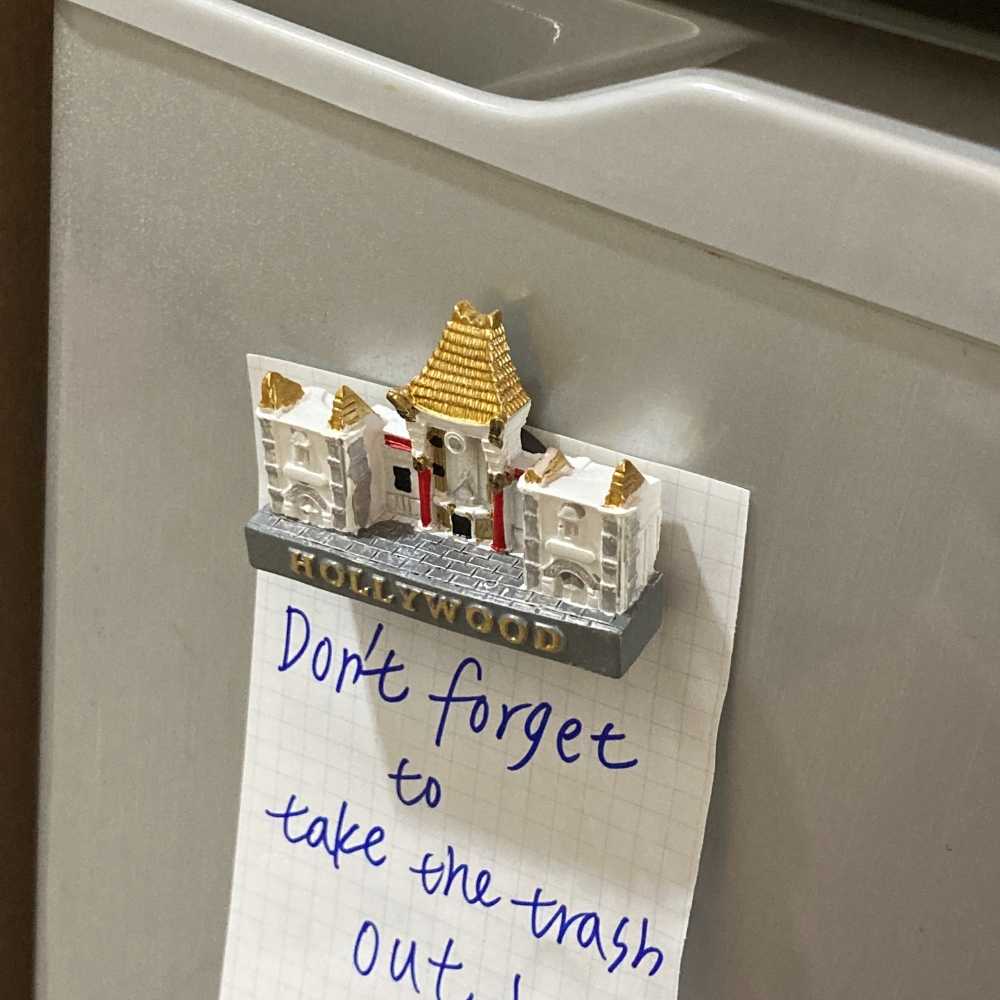 HOLLYWOOD
Don't forget
to
take the trash
out